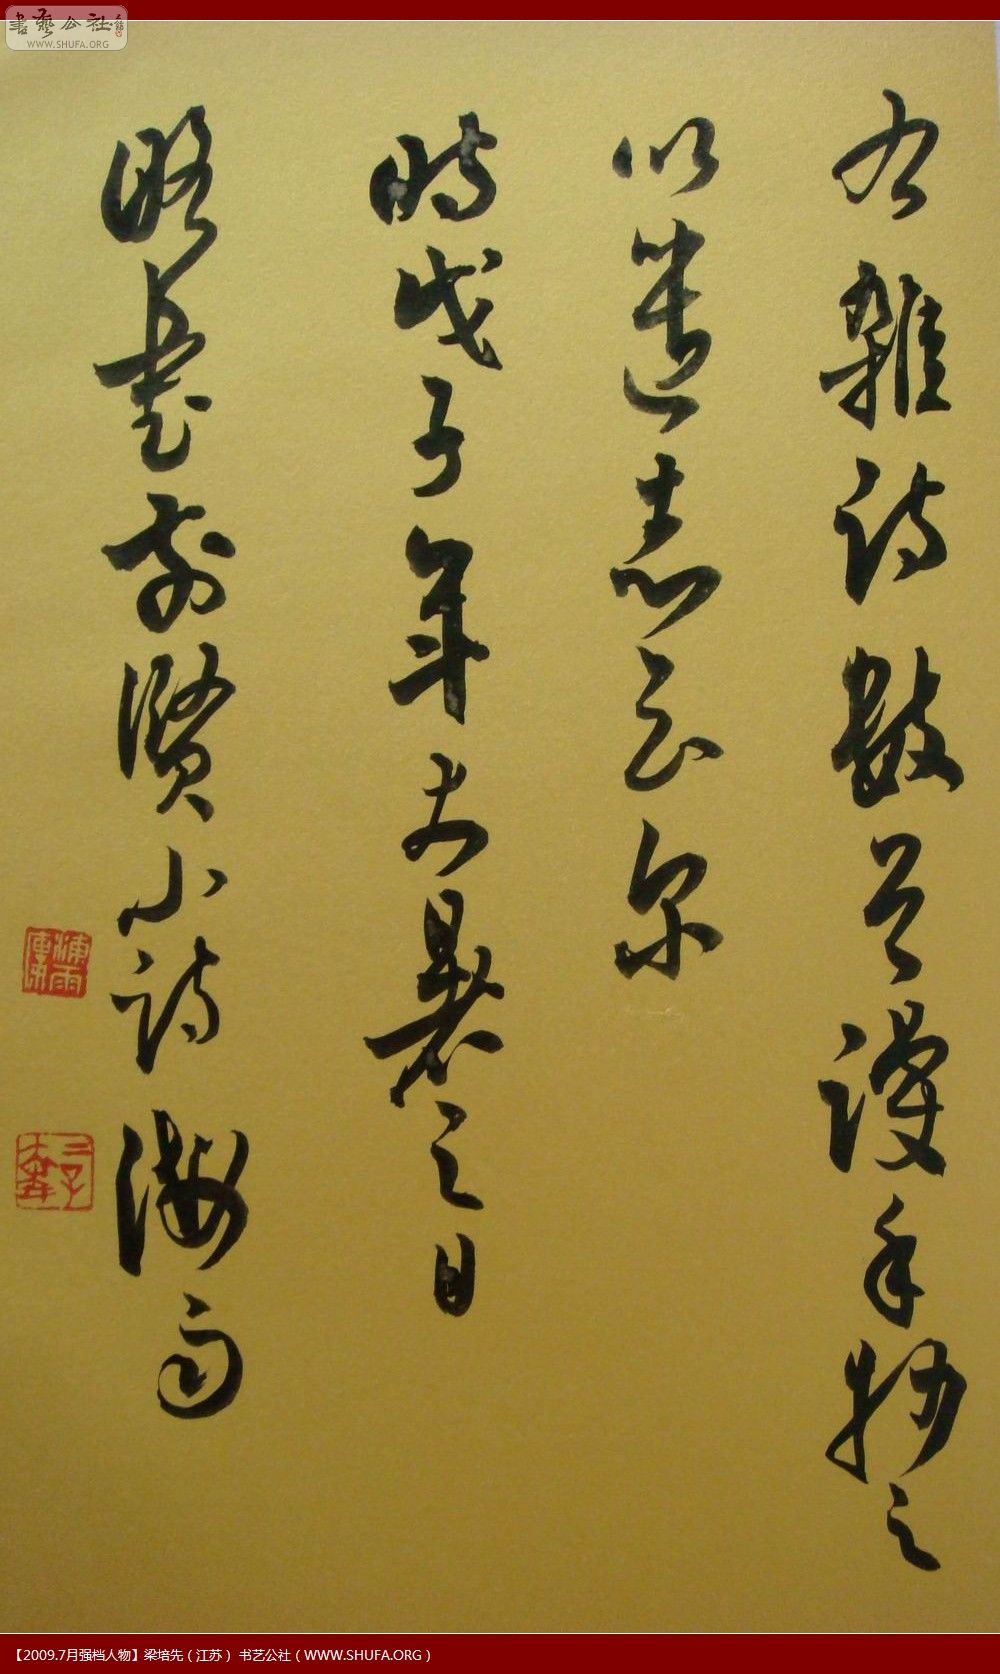 書藝公社
WWW.SHUFA.ORG
右雜詩數首漫手抄之
以遣志云尔
時戊子年大暑之日
略書前賢小詩 海雨
【2009.7月强档人物】梁培先（江苏） 书艺公社（WWW.SHUFA.ORG）